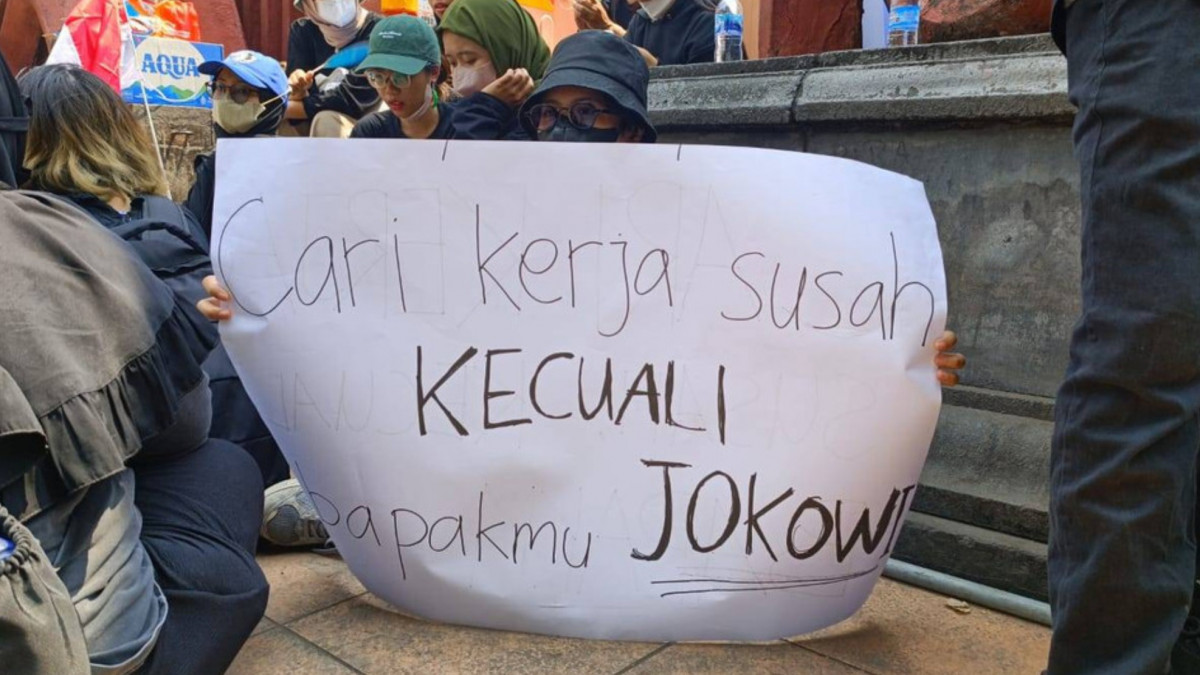 AQUA
Cari kerja susah
KECUALI
bapakmu JOKOWI